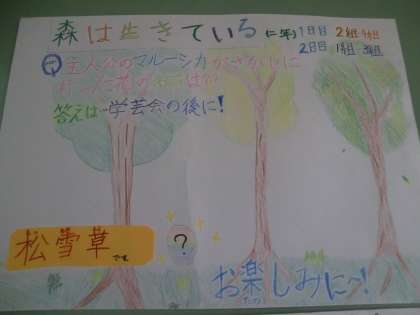 森は生きている (二年) 1日目 2組・4組
2日目 1組・3組
Q 主人公のマルーシカがさがしに
行った花の名は何?
答えは学芸会の後に!
松雪草です。
?
お楽しみに〜!